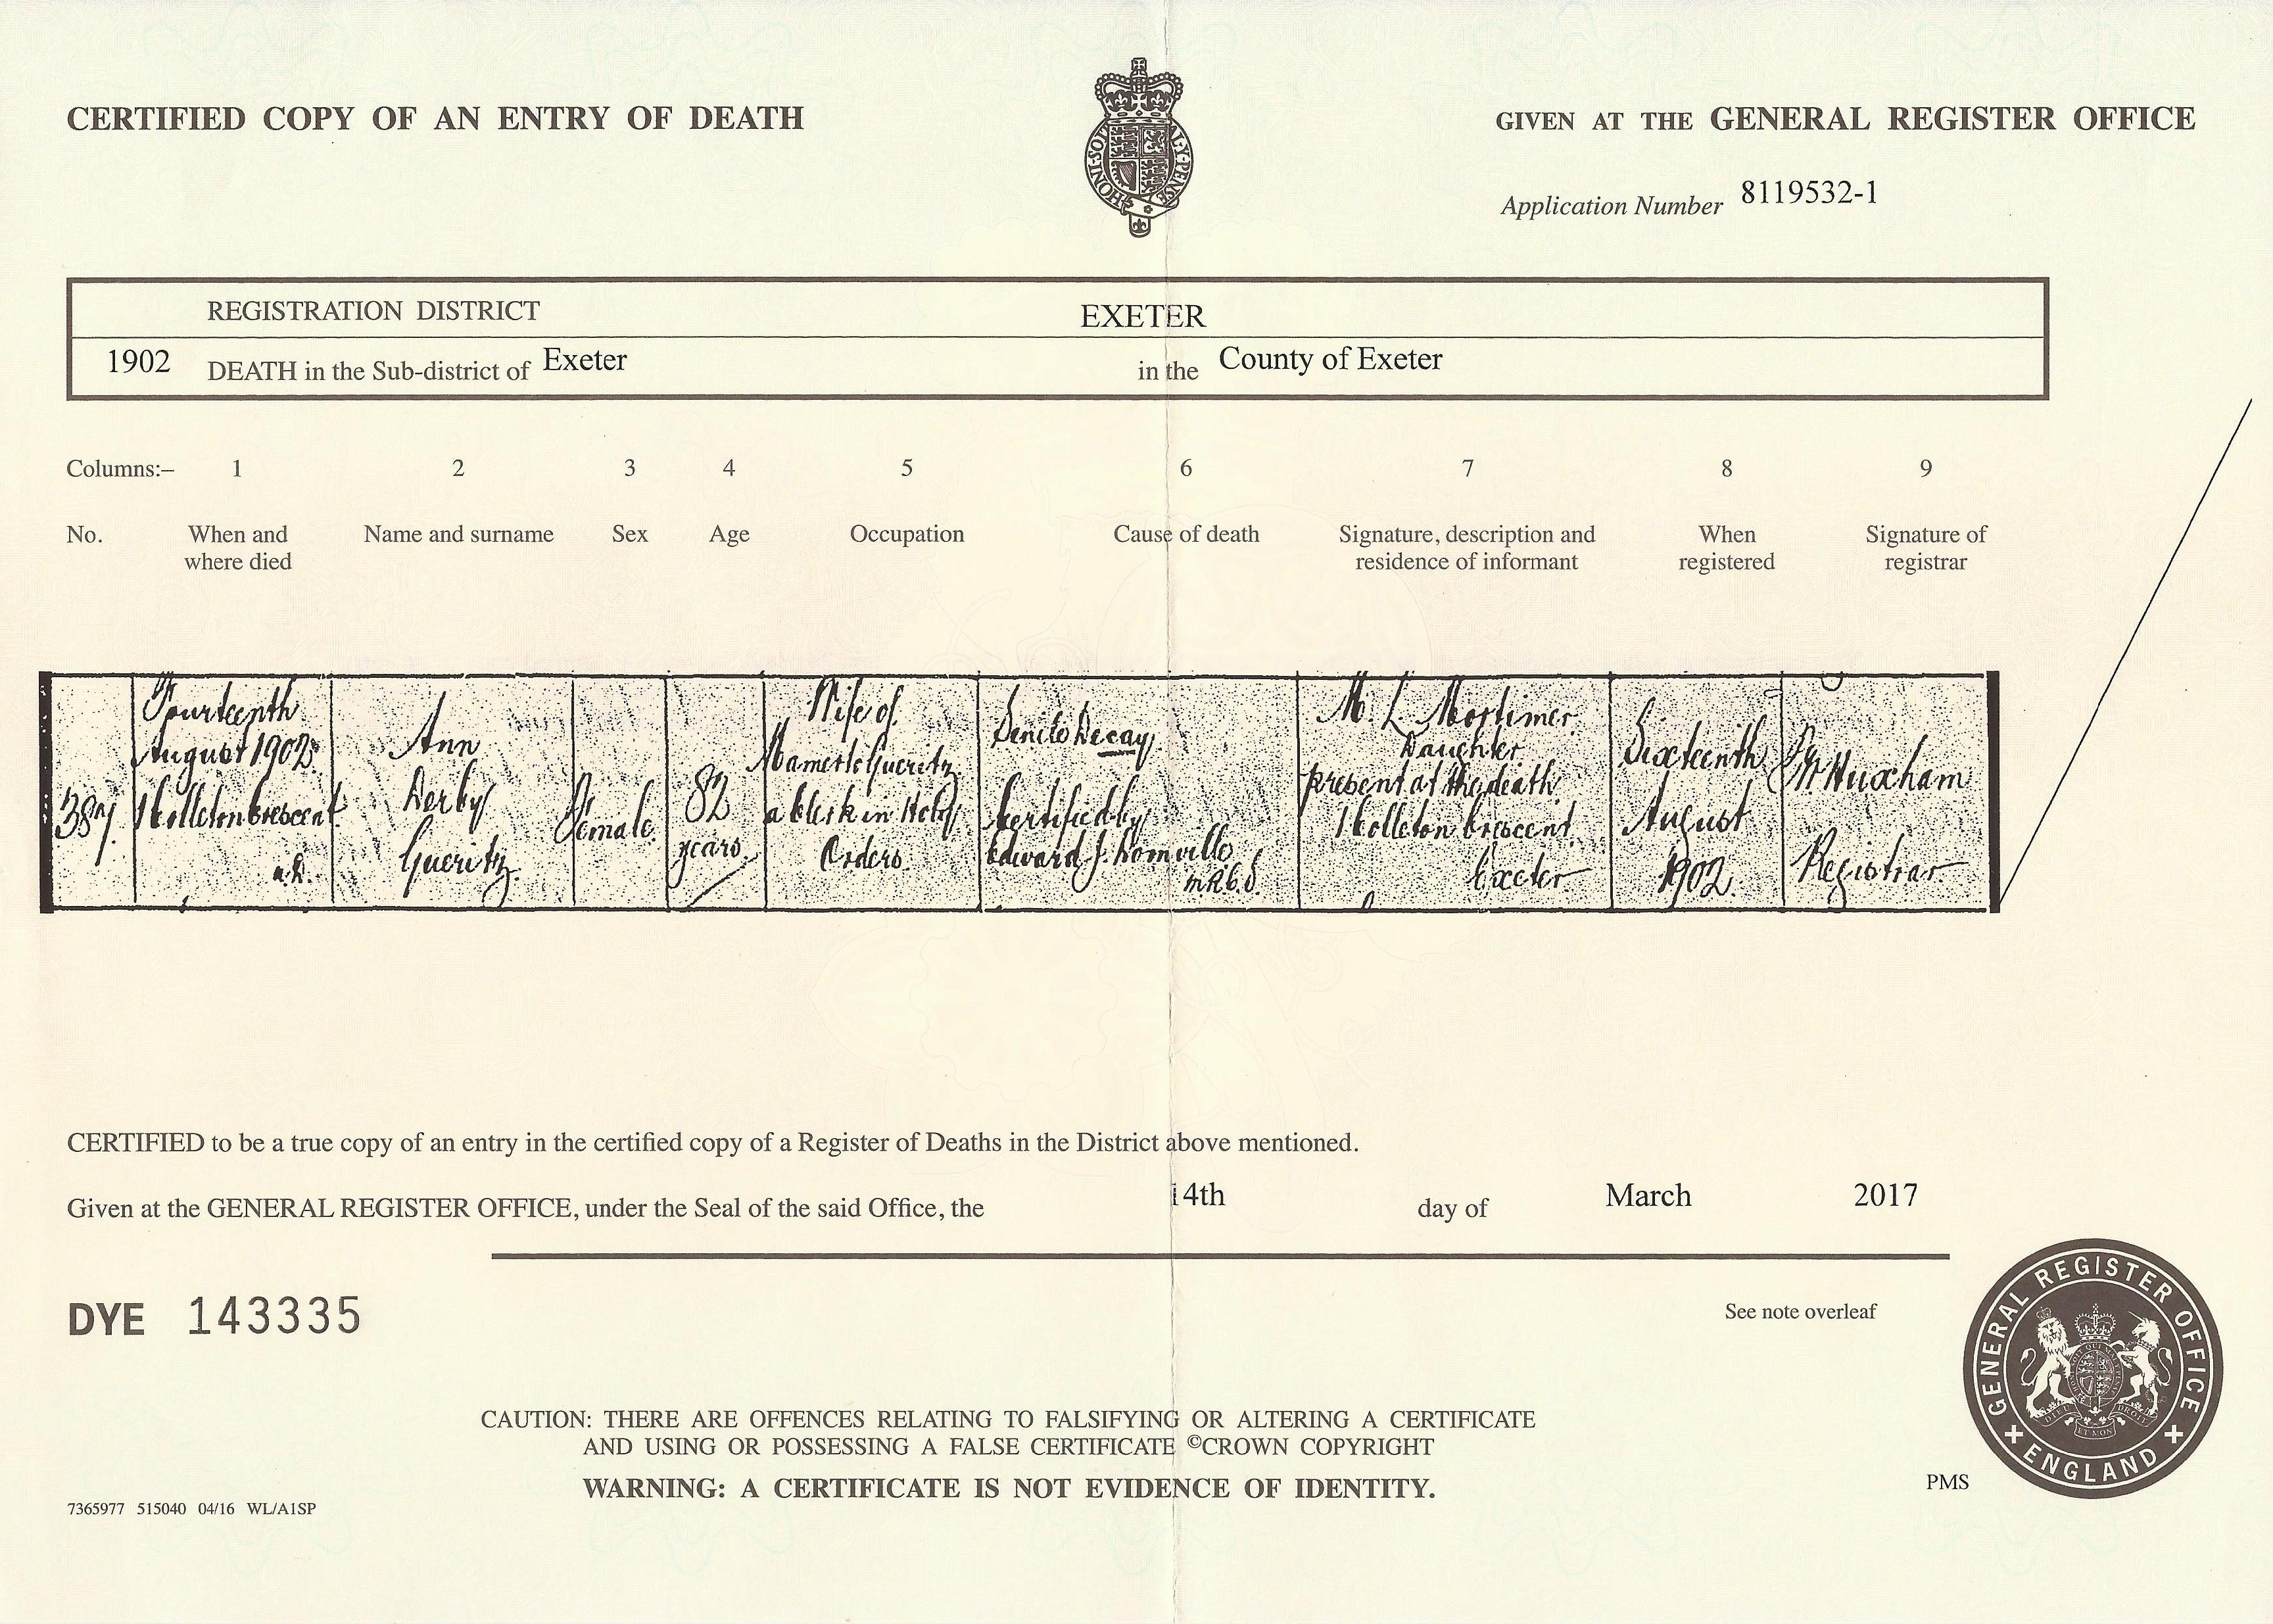 CERTIFIED COPY OF AN ENTRY OF DEATH
HONI·SOIT AL·Y·PENSE
GIVEN AT THE GENERAL REGISTER OFFICE
Application Number 8119532-1
REGISTRATION DISTRICT EXETER
1902 DEATH in the Sub-district of Exeter in the County of Exeter
Columns:– 1 2 3 4 5 6 7 8 9
No. When and where died Name and surname Sex Age Occupation Cause of death Signature, description and residence of informant When registered Signature of registrar
387
Fourteenth
August 1902
1 Colleton Crescent
Ann
Derby
Gueritz
Female
82
years
Wife of
Mamerto Gueritz
a Clerk in Holy
Orders
Senile Decay
Certified by
Edward J. Domville
MRCS
M. L. Mortimer
Daughter
present at the death
1 Colleton Crescent
Exeter
Sixteenth
August
1902
Huxham
Registrar
CERTIFIED to be a true copy of an entry in the certified copy of a Register of Deaths in the District above mentioned.
Given at the GENERAL REGISTER OFFICE, under the Seal of the said Office, the 14th day of March 2017
DYE 143335
See note overleaf
GENERAL REGISTER OFFICE
ENGLAND
DIEU ET MON DROIT
CAUTION: THERE ARE OFFENCES RELATING TO FALSIFYING OR ALTERING A CERTIFICATE
AND USING OR POSSESSING A FALSE CERTIFICATE ©CROWN COPYRIGHT
WARNING: A CERTIFICATE IS NOT EVIDENCE OF IDENTITY.
PMS
7365977 515040 04/16 WL/A1SP